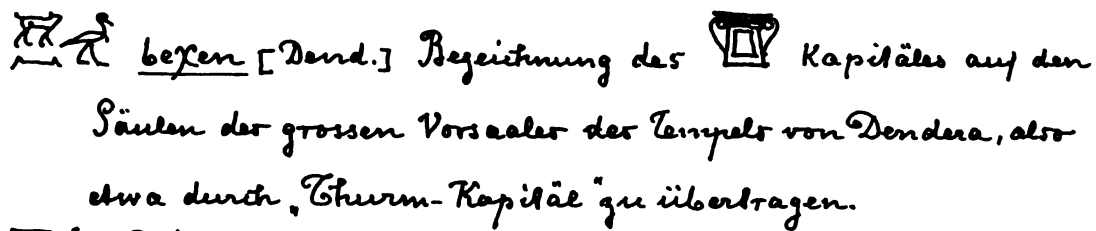 beχen [Dend.] Bezeichnung des Kapitäles auf den
Säulen des grossen Vorsaales des Tempels von Dendera, also
etwa durch „Thurm-Kapitäl“ zu übertragen.